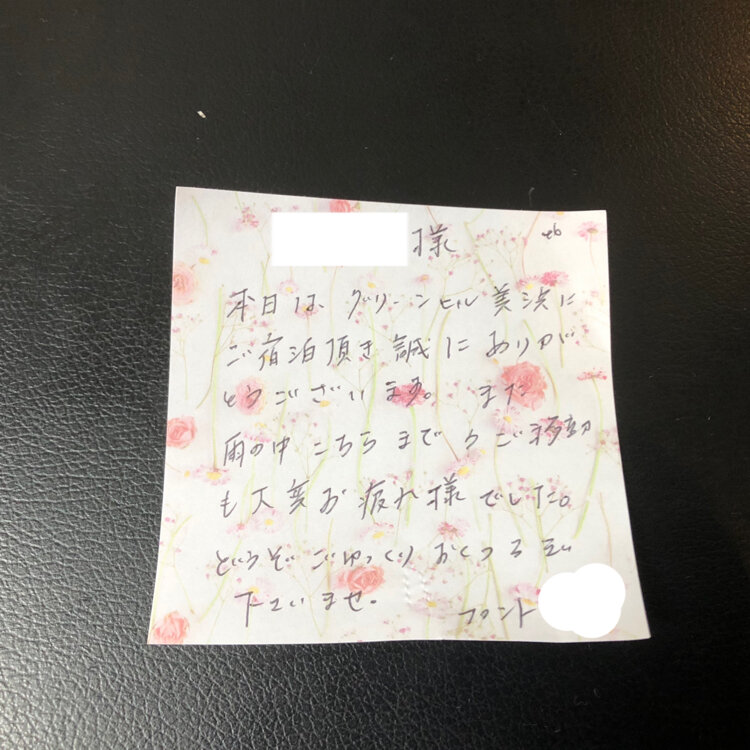 様
本日は、グリーンヒル美浜に
ご宿泊頂き誠にありが
とうございます。また
雨の中こちらまでのご移動
も大変お疲れ様でした。
どうぞごゆっくりおくつろぎ
下さいませ。
フロント